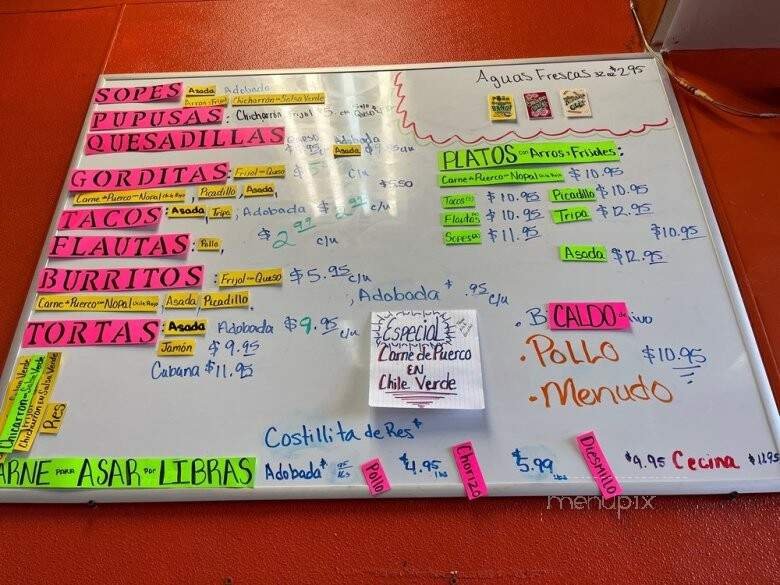 Aguas Frescas 32 oz $2.95
SOPES Asada Adobada
Arroz y Frijol Chicharrón en Salsa Verde
PUPUSAS: Chicharrón Frijol
QUESADILLAS Queso Adobada
Asada
GORDITAS: Frijol con Queso $5 c/u
$5.50
Carne de Puerco con Nopal Chile Rojo Picadillo, Asada,
TACOS: Asada, Tripa, Adobada $2.99 c/u
FLAUTAS: Pollo, $2.99 c/u
BURRITOS: Frijol con Queso $5.95 c/u
Carne de Puerco con Nopal Chile Rojo Asada Picadillo.
, Adobada $ .95 c/u
TORTAS: Asada Adobada $9.95 c/u
Jamón $9.95
Cubana $11.95
Chicharrón en Salsa Verde
Chicharrón en Salsa Verde
Res
PLATOS con Arros y Frijoles:
Carne de Puerco con Nopal Chile Rojo $10.95
Tacos(3) $10.95 Picadillo $10.95
Flautas $10.95 Tripa $12.95
Sopes(2) $11.95 $10.95
Asada $12.95
Especial
Carne de Puerco
EN
Chile Verde
CALDO de
• POLLO $10.95
• Menudo
Costillita de Res $
ARNE PARA ASAR por LIBRAS Adobada $ .95 Lbs Pollo $4.95 Lbs Chorizo $5.99 Lbs Diesmillo $9.95 Cecina $11.95
menupix